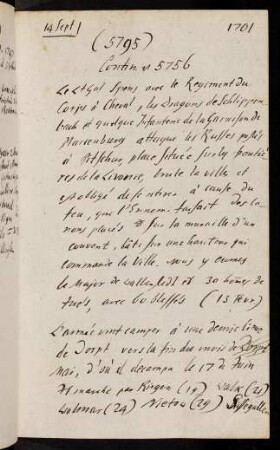 14 Sept 1701
(5795)
Contin. v 5756
Le Lt Gal Spens avec le Regiment Du
Corps à Cheval, les Dragons de Schlippen
bach et quelque Infanterie de la Garnison de
Marienburg attaque les Russes postés
à Pitschur, place située sur les frontiè
res de la Livonie, brule la ville et
est obligé de se retirer à cause du
feu, que l'Ennemi faisait des Ca
nons placés sur la muraille d'un
couvent, bâti sur une hauteur qui
commande la Ville. nous y eumes
le Major de Gallenfeldt et 30 hommes de
tués, avec 60 blessés (13 Fevr)
L'armée vint camper à une demie lieue
de Dorpt vers la fin du mois de
Mai, d'où il decampa le 17 de Juin
et marcha par Ringen (19) Walk (21)
Wolmar (24) Nietau (29)